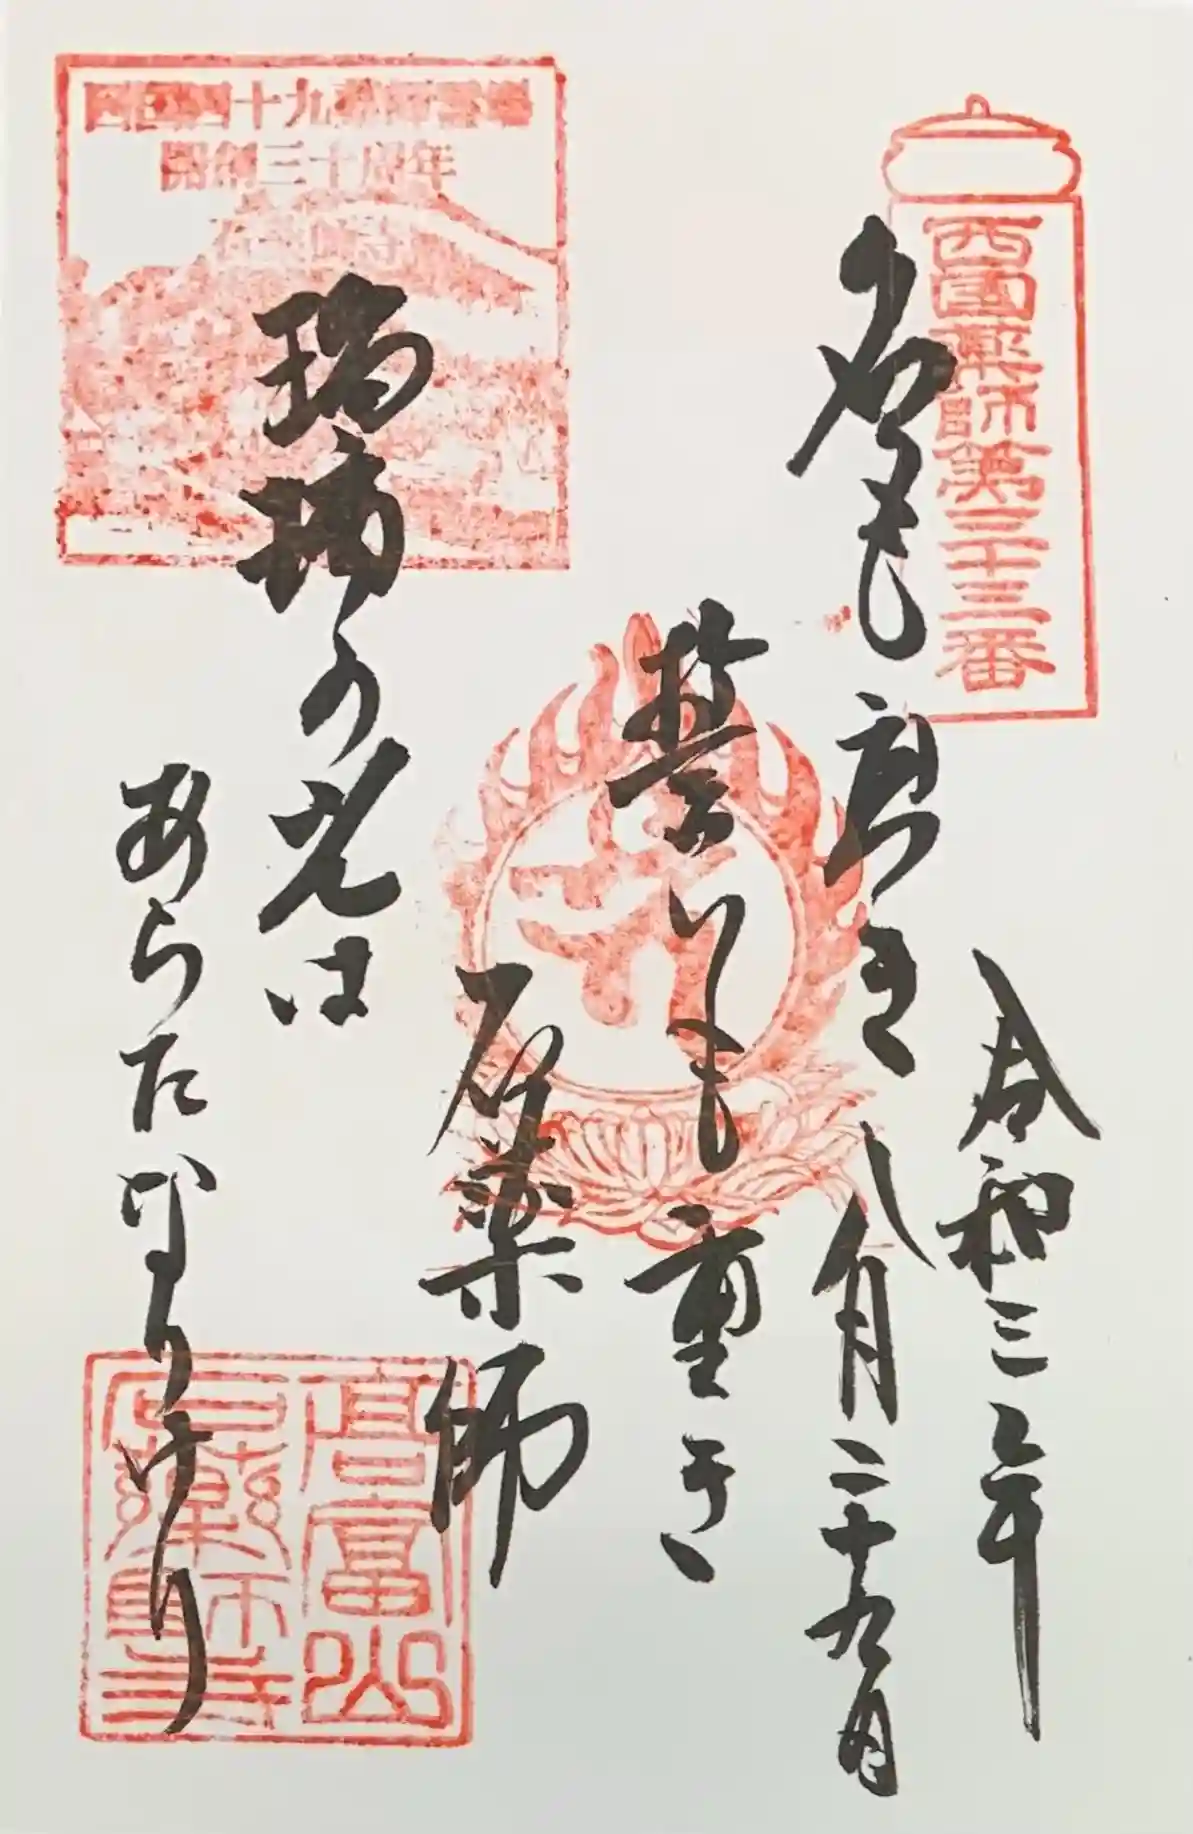 西國薬師第三十三番
令和三年
名も高き
八月二十九日
誓いも重き
石薬師
瑠璃の光は
あらたなりけり
西国四十九薬師霊場
開創三十周年
石薬師寺
高富山
石薬師寺